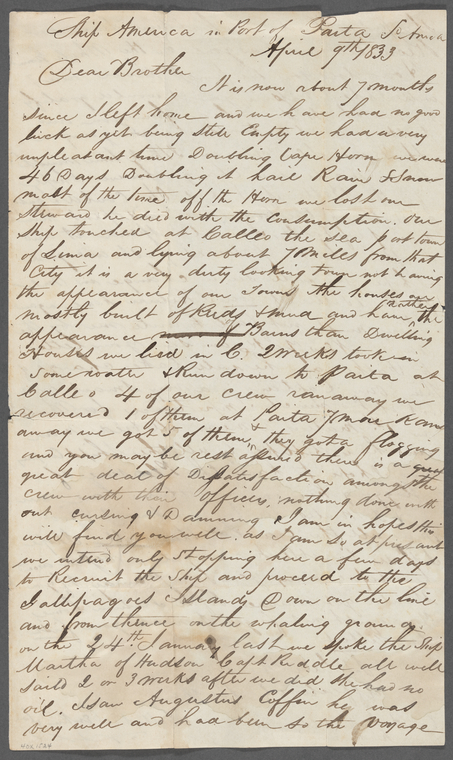 Ship America in Port of Paita So America
April 9th 1833
Dear Brother
It is now about 7 months
since I left home and we have had no good
luck as yet being Stile Empty we had a very
unpleasant time Doubling Cape Horn we were
46 Days Doubling it hail Rain & Snow
most of the time off the Horn we lost our
Steward he died with the Consumption. our
Ship touched at Calleo the sea port town
of Lima and lying about 7 Miles from that
City it is a very dirty looking town not having
the appearance of our Towns the houses are
mostly built of Reeds & mud and have rather the
appearance of Barns than Dwelling
Houses we lied in C. 2 weeks took in
some water & Run down to Paita at
Calleo 4 of our crew ran away we
recovered 1 of them at Paita 7 more Rann
away we got 5 of them & they got a flogging
and you may be rest assured there is a great
great deal of Dissatisfaction among the
Crew with their Officers, nothing done with
out cursing & Damning & I am in hopes this
will find you well as I am so at present
we intend only Stopping here a few days
to Recruit the Ship and proceed to the
Gallipagoes Islands Down on the line
and from thence on the whaling ground
on the 24th January last we spoke the Ship
Martha of Hudson Capt Riddle all well
said 2 or 3 weeks after we did she had no
oil. I saw Augustus Coffin he was
very well and had been so the voyage